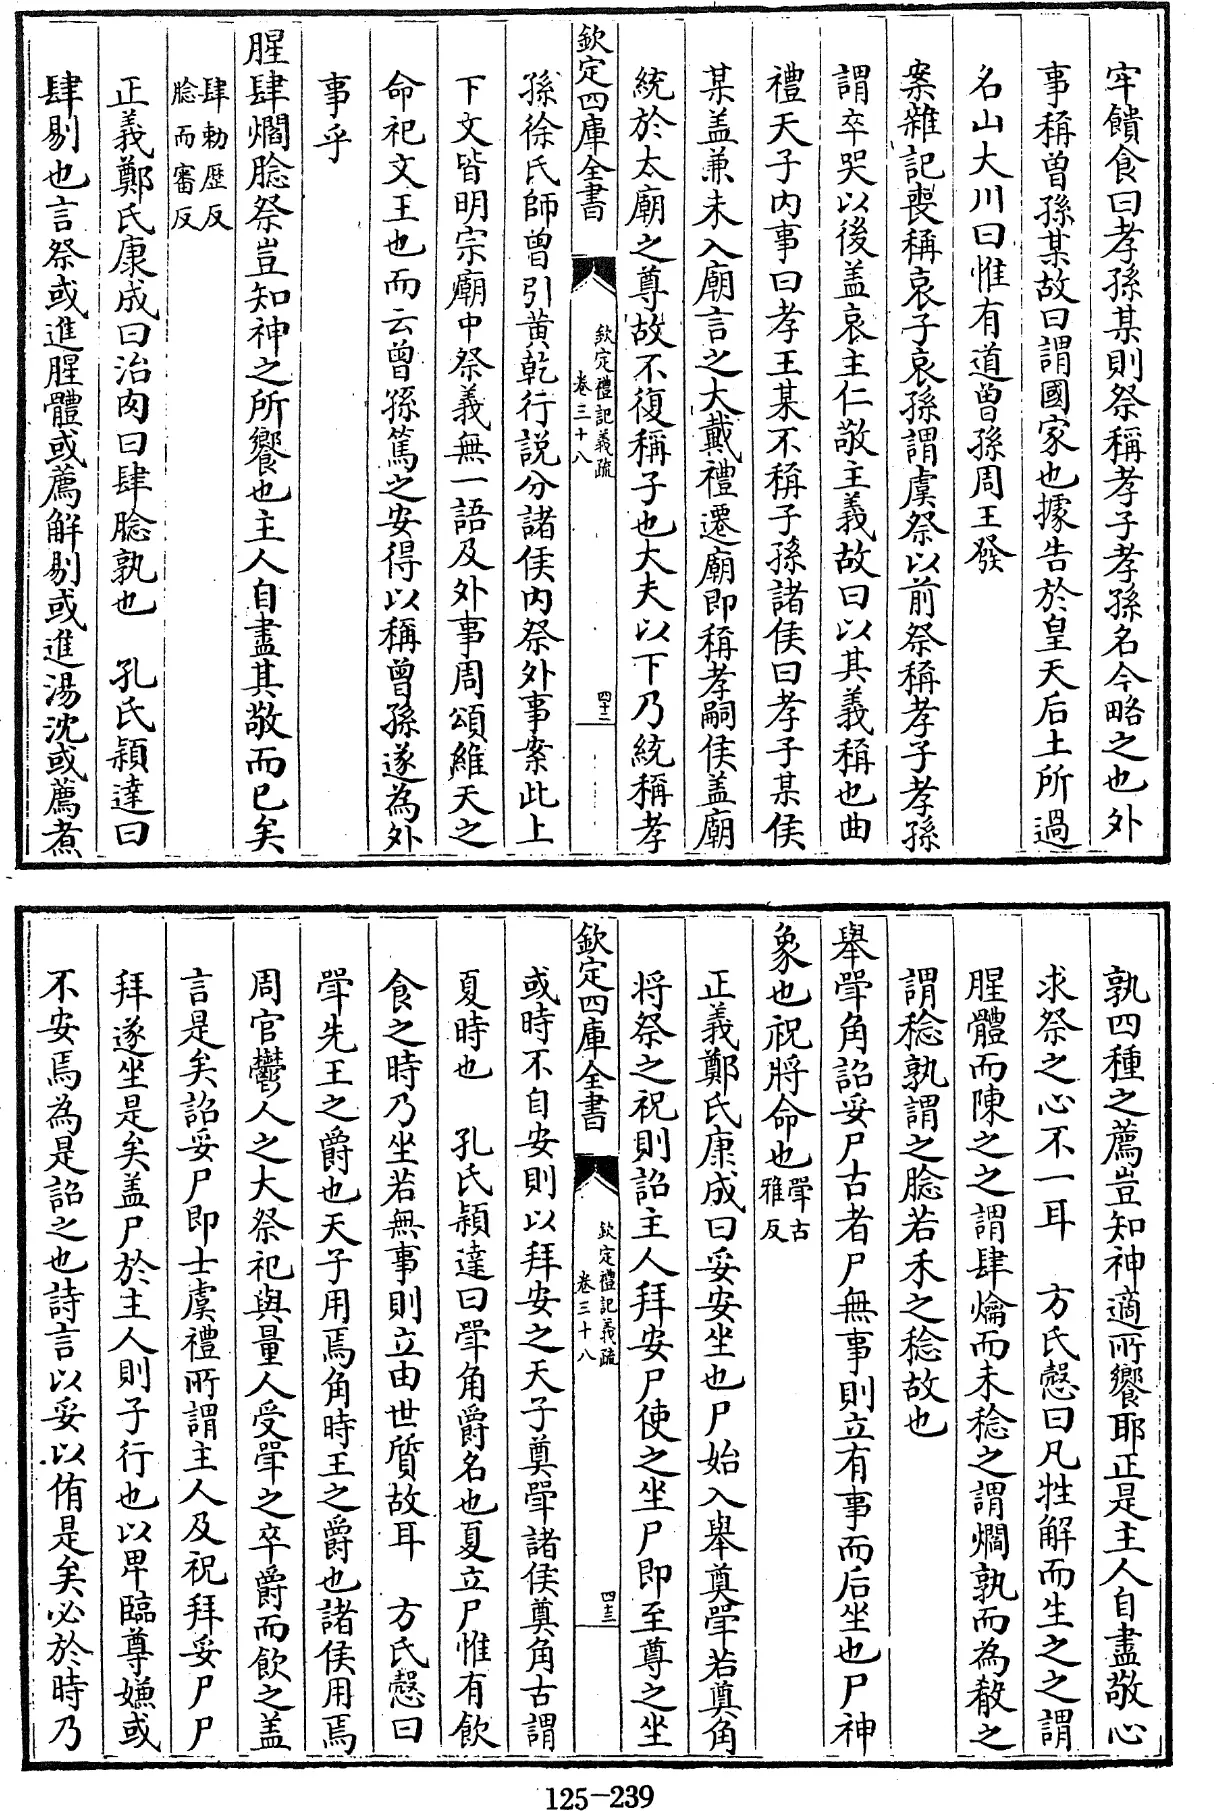 牢饋食曰孝孫某則祭稱孝子孝孫名今略之也外
事稱曾孫某故曰謂國家也據告於皇天后土所過
名山大川曰惟有道曾孫周王發
案雜記喪稱哀子哀孫謂虞祭以前祭稱孝子孝孫
謂卒哭以後盖哀主仁敬主義故曰以其義稱也曲
禮天子内事曰孝王某不稱子孫諸侯曰孝子某侯
某盖兼未入廟言之大戴禮遷廟即稱孝嗣侯盖廟
統於太廟之尊故不復稱子也大夫以下乃統稱孝
欽定四庫全書
欽定禮記義疏
卷三十八
四十二
孫徐氏師曾引黄乾行説分諸侯内祭外事案此上
下文皆明宗廟中祭義無一語及外事周頌維天之
命祀文王也而云曾孫篤之安得以稱曾孫遂為外
事乎
腥肆爓腍祭豈知神之所饗也主人自盡其敬而已矣
肆勅歴反
腍而審反
正義鄭氏康成曰治肉曰肆腍孰也　孔氏穎達曰
肆剔也言祭或進腥體或薦解剔或進湯沈或薦煮
孰四種之薦豈知神適所饗耶正是主人自盡敬心
求祭之心不一耳　方氏慤曰凡牲解而生之之謂
腥體而陳之之謂肆爚而未稔之謂爓孰而為殽之
謂稔孰謂之腍若禾之稔故也
舉斝角詔妥尸古者尸無事則立有事而后坐也尸神
象也祝將命也斝古
雅反
正義鄭氏康成曰妥安坐也尸始入舉奠斝若奠角
将祭之祝則詔主人拜安尸使之坐尸即至尊之坐
欽定四庫全書
欽定禮記義疏
卷三十八
四十三
或時不自安則以拜安之天子奠斝諸侯奠角古謂
夏時也　孔氏穎達曰斝角爵名也夏立尸惟有飲
食之時乃坐若無事則立由世質故耳　方氏慤曰
斝先王之爵也天子用焉角時王之爵也諸侯用焉
周官鬱人之大祭祀與量人受斝之卒爵而飲之盖
言是矣詔妥尸即士虞禮所謂主人及祝拜妥尸尸
拜遂坐是矣盖尸於主人則子行也以卑臨尊嫌或
不安焉為是詔之也詩言以妥以侑是矣必於時乃
125-239